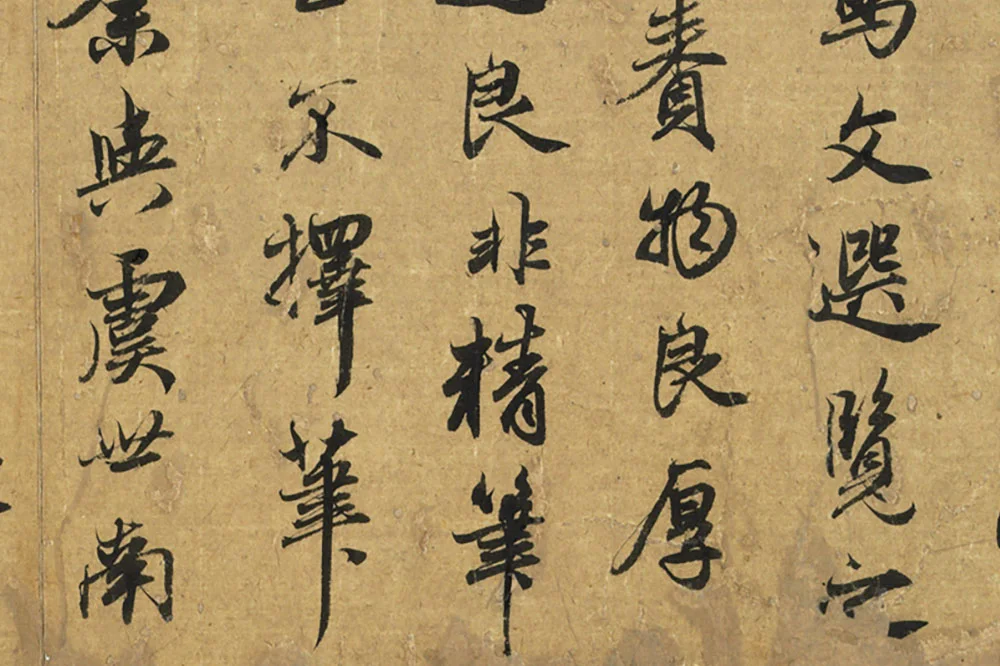 文選覽之
賚物良厚
良非精筆
不擇筆
余與虞世南